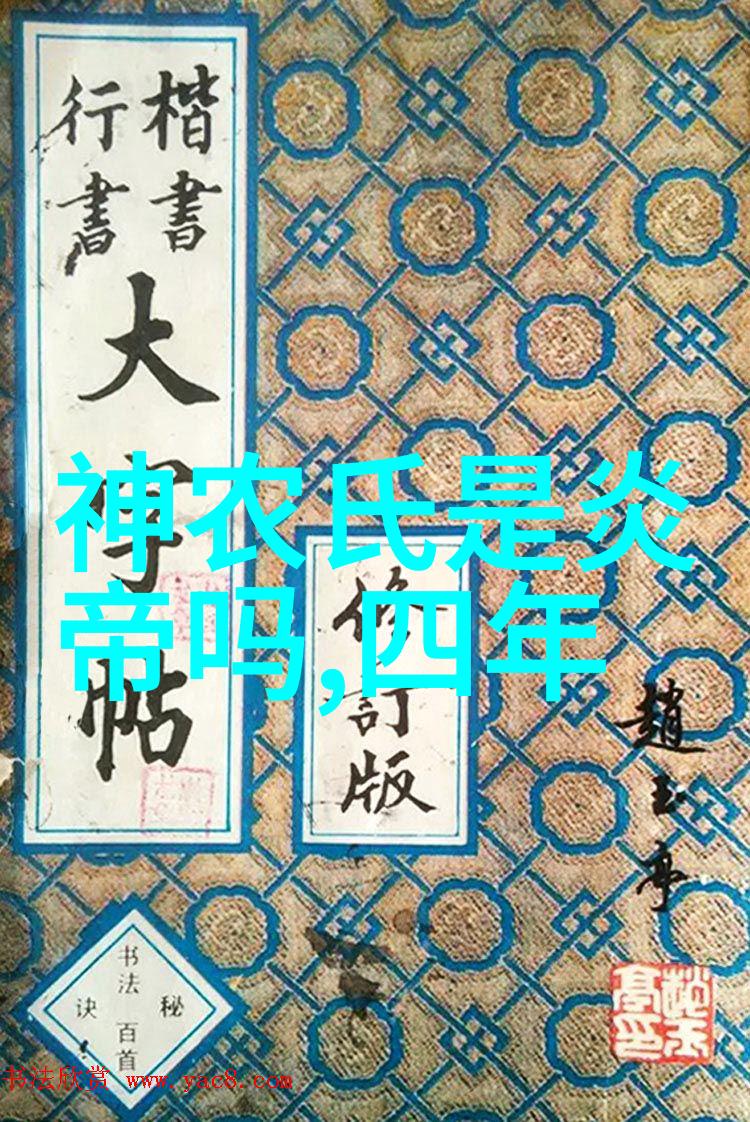 楷書
行書
大字帖
神农氏是炎
帝吗,四年
修訂版
趙玉亭
书法百首
秘
诀
书法欣赏 www.yac8.com